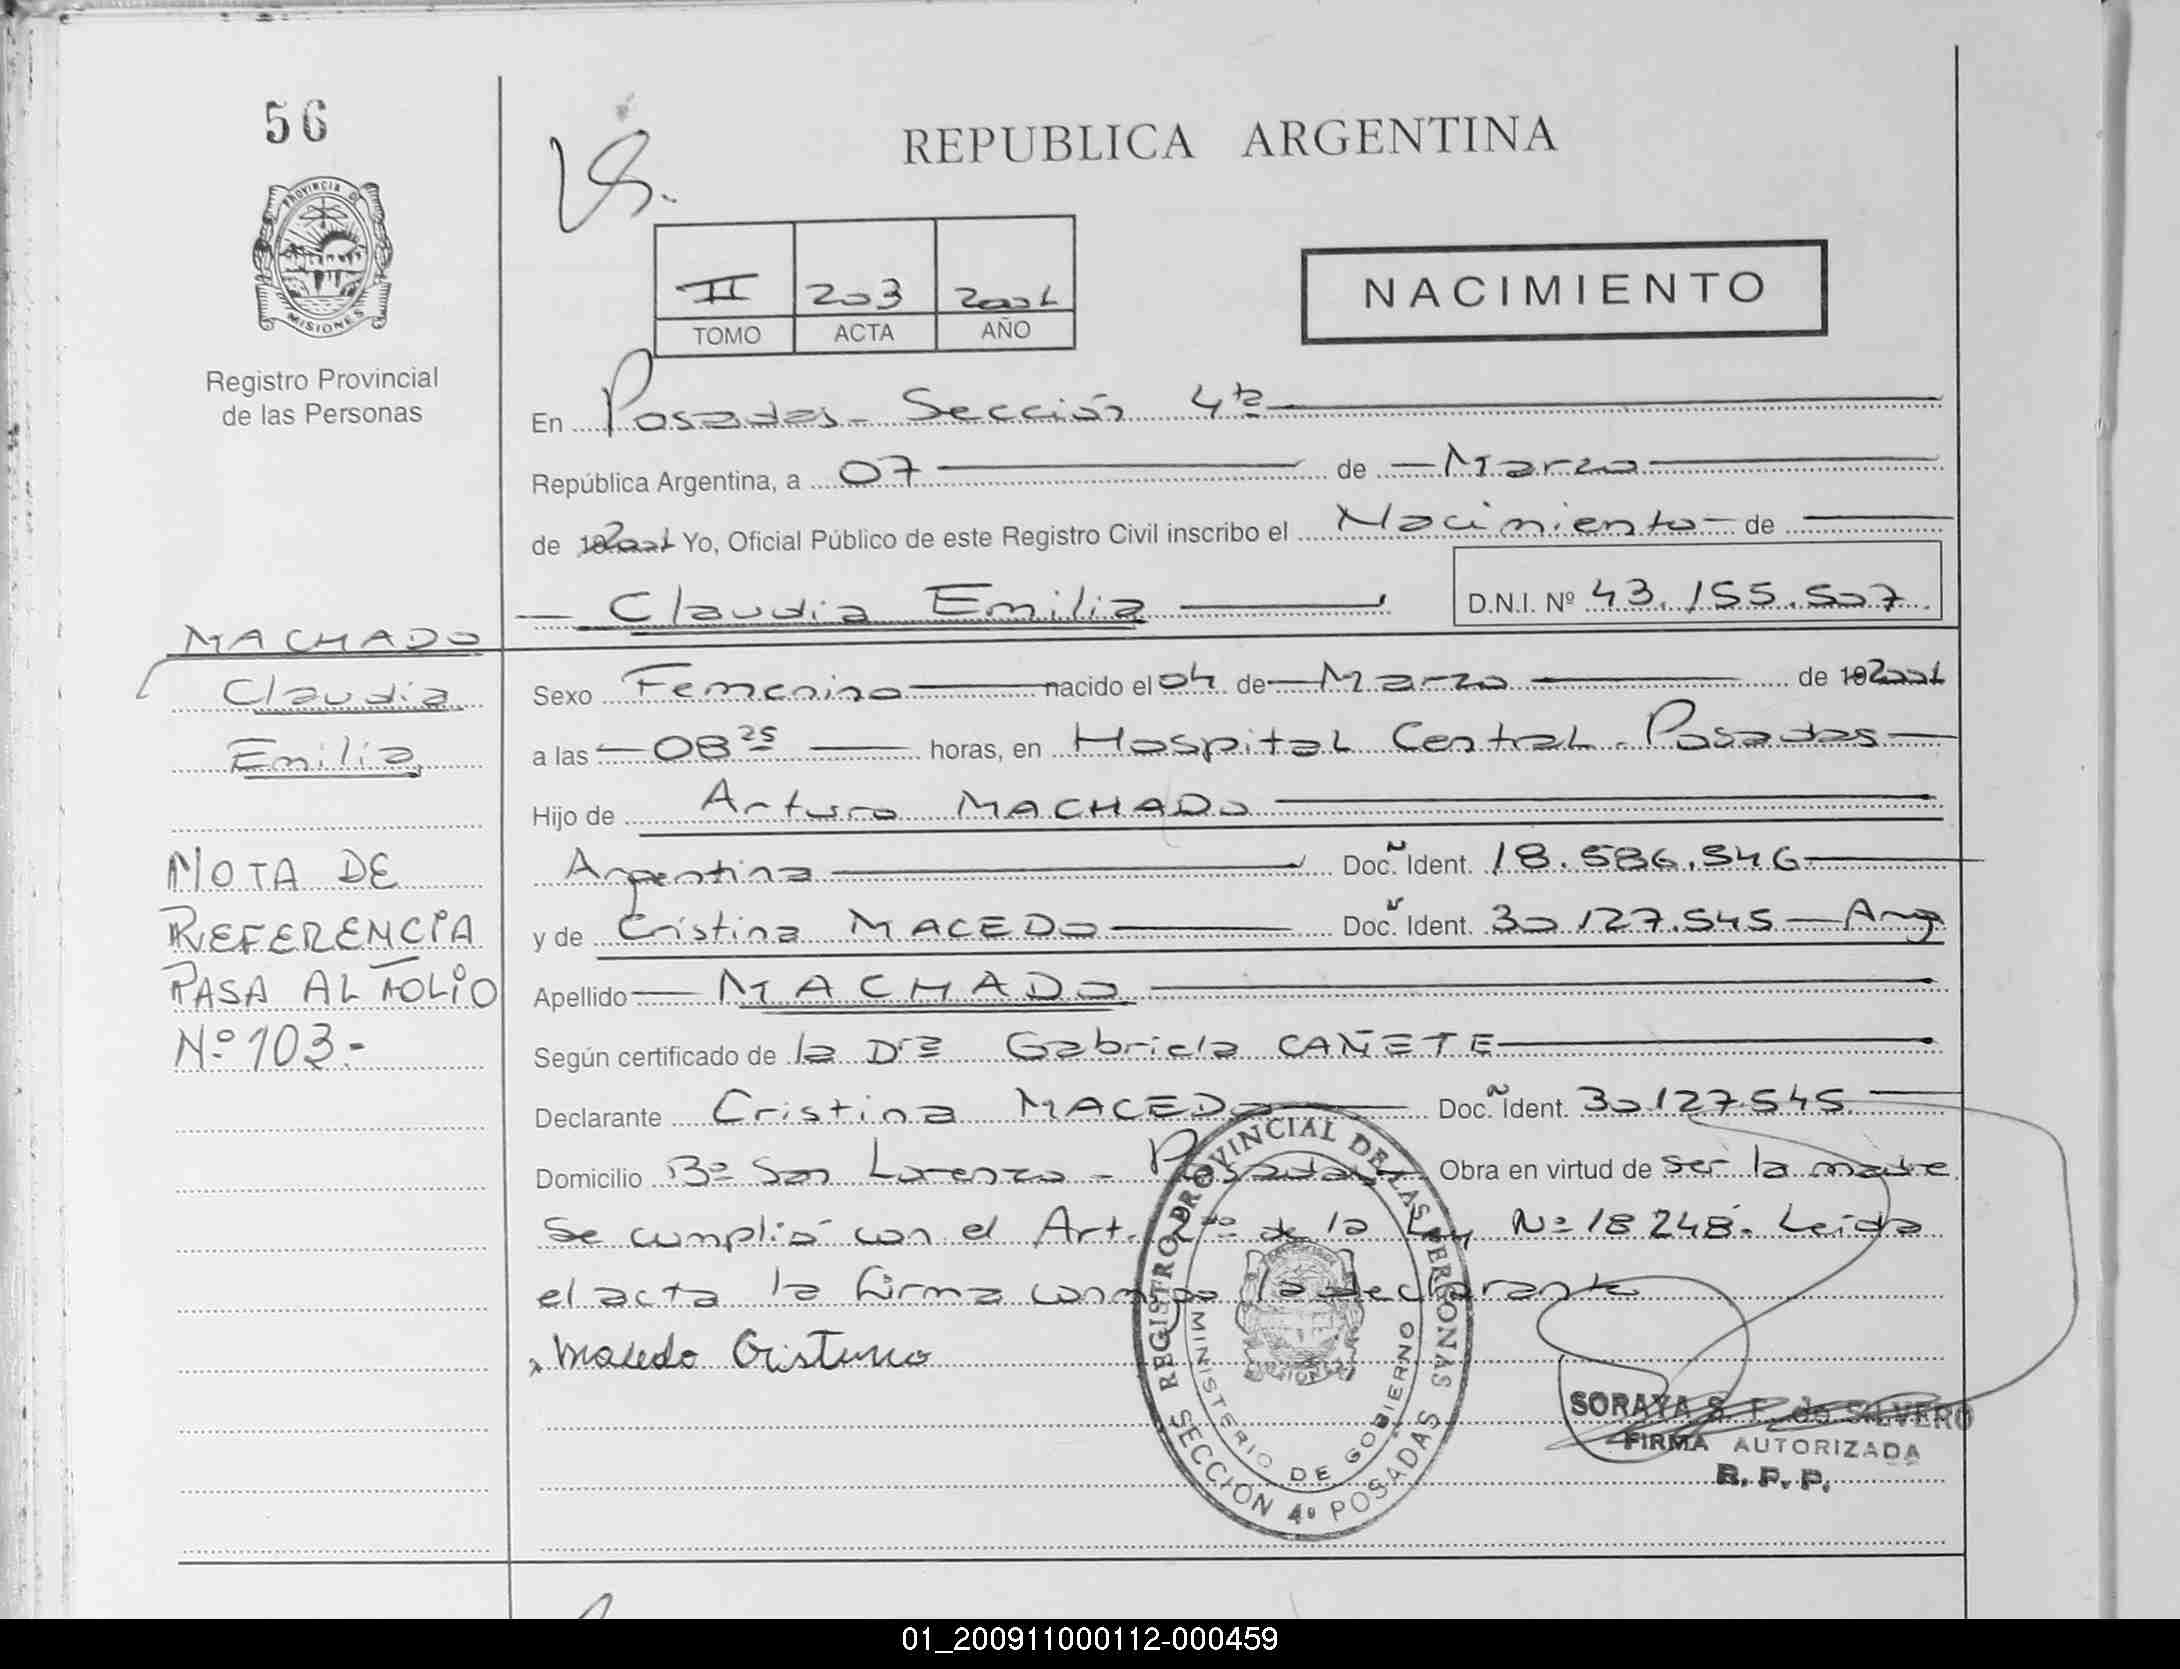 56
REPUBLICA ARGENTINA
PROVINCIA D
MISIONES
II 203 2001
TOMO ACTA AÑO
NACIMIENTO
Registro Provincial
de las Personas
En Posadas - Sección 4ta
República Argentina, a 07 de Marzo
de 2001 Yo, Oficial Público de este Registro Civil inscribo el Nacimiento de
Claudia Emilia
D.N.I. Nº 43.155.507
MACHADO
Claudia
Emilia
NOTA DE
REFERENCIA
PASA AL FOLIO
Nº 103.-
Sexo Femenino nacido el 04 de Marzo de 2001
a las 08 25 horas, en Hospital Central - Posadas
Hijo de Arturo MACHADO
Argentina Doc. Ident. 18.586.546
y de Cristina MACEDO Doc. Ident. 30.127.545 - Arg
Apellido MACHADO
Según certificado de la Dra Gabriela CAÑETE
Declarante Cristina MACEDO Doc. Ident. 30.127.545
Domicilio Bº San Lorenzo - Posadas - Obra en virtud de ser la madre
Se cumplió con el Art. 2do de la Ley Nº 18248. Leida
el acta la firma conmigo la declarante
Macedo Cristina
REGISTRO PROVINCIAL DE LAS PERSONAS
MINISTERIO DE GOBIERNO
SECCIÓN 4º POSADAS
SORAYA S. F. de SILVERO
FIRMA AUTORIZADA
R. P. P.
01_200911000112-000459